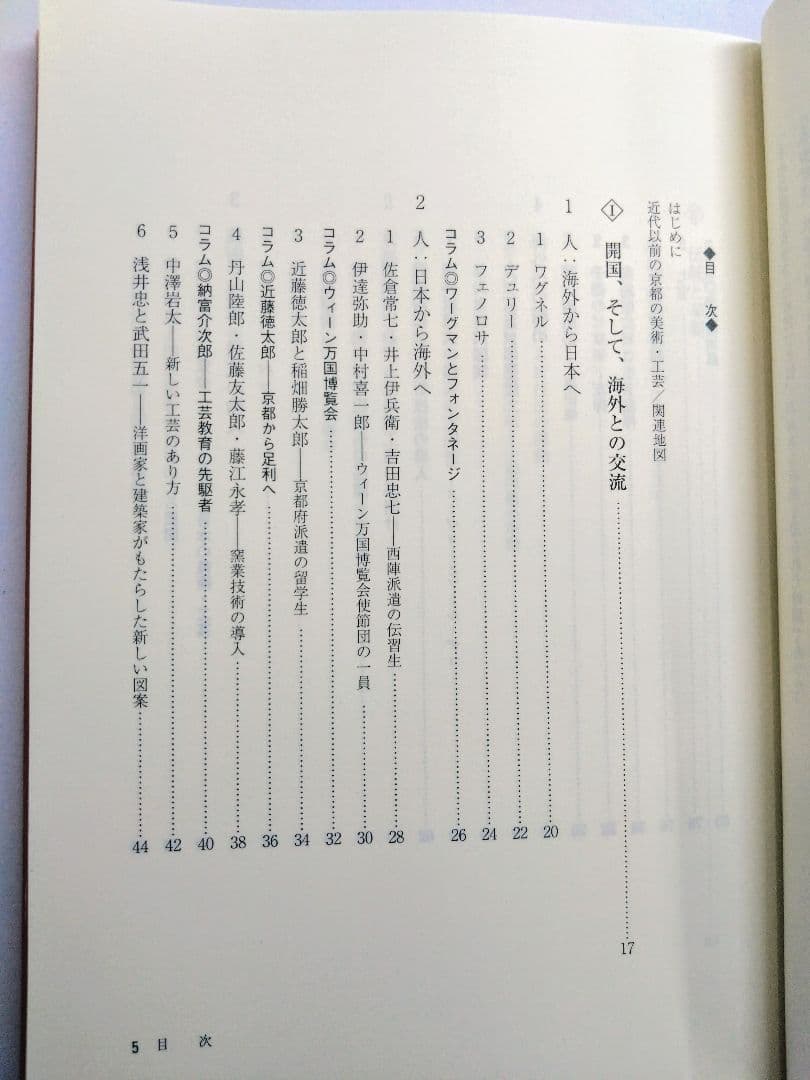 ◆目　次◆
はじめに
近代以前の京都の美術・工芸／関連地図
Ⅰ 開国、そして、海外との交流……17
1 人：海外から日本へ
1 ワグネル……20
2 デュリー……22
3 フェノロサ……24
コラム◎ワーグマンとフォンタネージ……26
2 人：日本から海外へ
1 佐倉常七・井上伊兵衛・吉田忠七――西陣派遣の伝習生……28
2 伊達弥助・中村喜一郎――ウィーン万国博覧会使節団の一員……30
コラム◎ウィーン万国博覧会……32
3 近藤徳太郎と稲畑勝太郎――京都府派遣の留学生……34
コラム◎近藤徳太郎――京都から足利へ……36
4 丹山陸郎・佐藤友太郎・藤江永孝――窯業技術の導入……38
コラム◎納富介次郎――工芸教育の先駆者……40
5 中澤岩太――新しい工芸のあり方……42
6 浅井忠と武田五一――洋画家と建築家がもたらした新しい図案……44
5 目　次